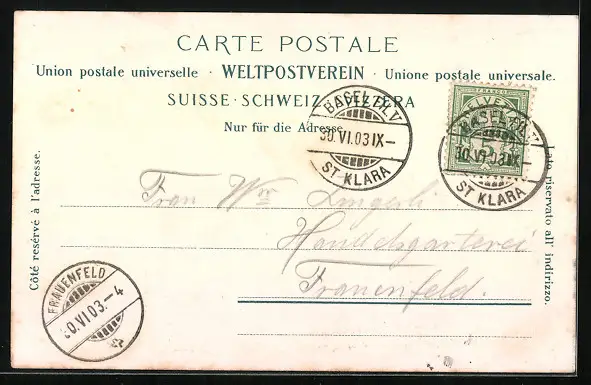 CARTE POSTALE
Union postale universelle · WELTPOSTVEREIN · Unione postale universale.
SUISSE · SCHWEIZ · SVIZZERA
Nur für die Adresse
BASEL BR.V
30.VI.03 IX–
ST KLARA
FRANCO
5
BASEL BR.V
30.VI.03 IX–
ST KLARA
Côté reservé à l'adresse.
Lato riservato all' indirizzo.
Frau Wwe
Handelsgärterei
Frauenfeld.
FRAUENFELD
30.VI.03.–4